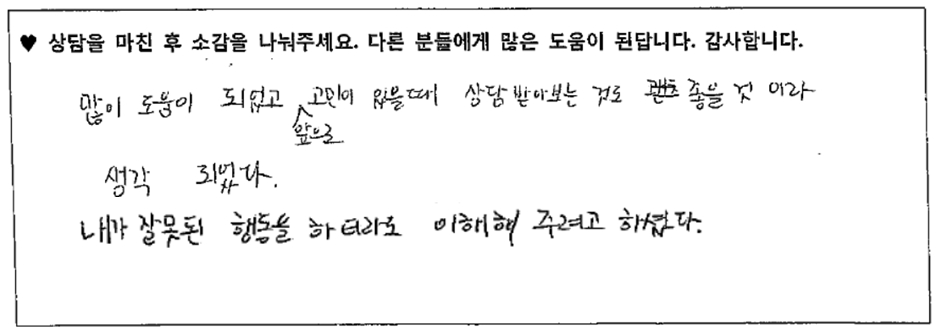 ♥ 상담을 마친 후 소감을 나눠주세요. 다른 분들에게 많은 도움이 된답니다. 감사합니다.
많이 도움이 되었고 앞으로 고민이 있을때 상담 받아보는 것도 좋을 것 이라
생각 되었다.
내가 잘못된 행동을 하더라도 이해해 주려고 하셨다.